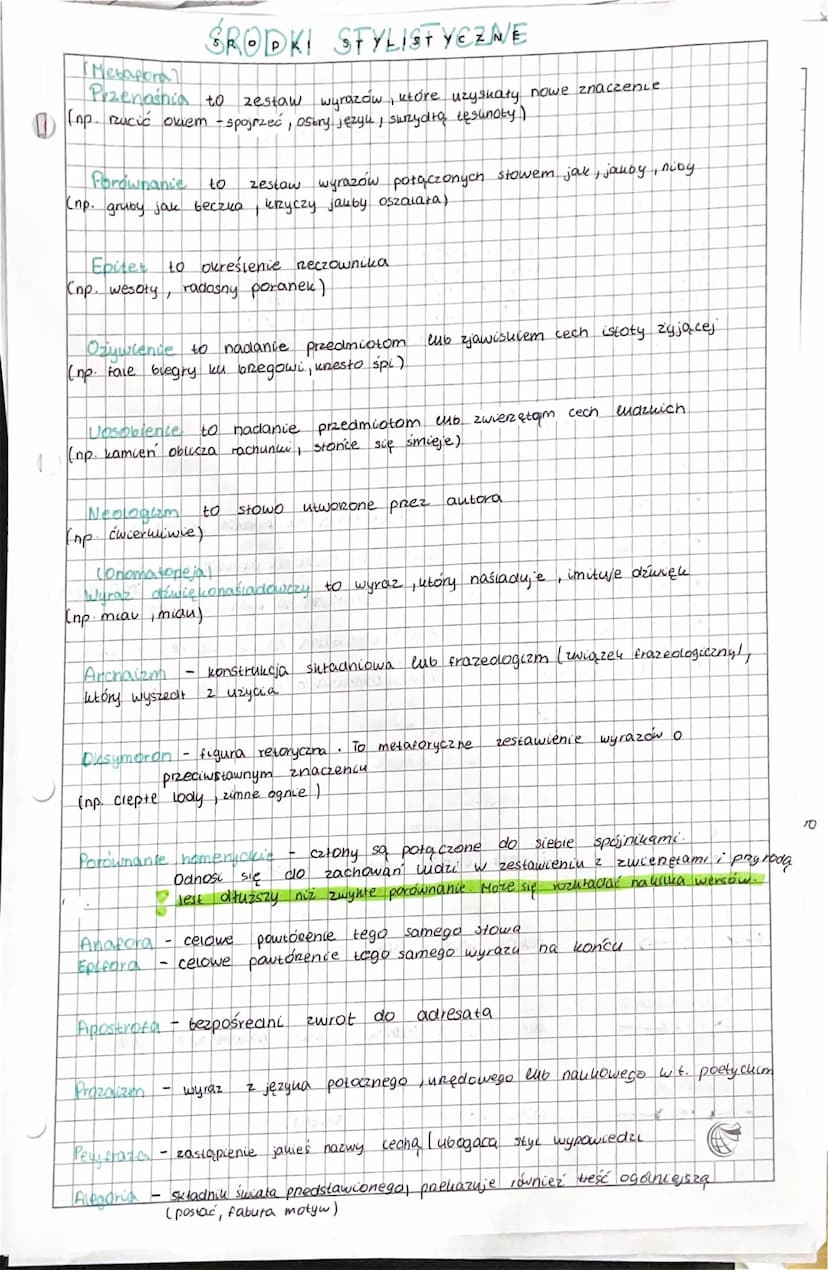 ŚRODKI STYLISTYCZNE
(Metafora)
Przenośnia to zestaw wyrazów, które uzyskały nowe znaczenie
(np. rzucić okiem - spojrzeć, ostry język, skrzydła tęsknoty)
Porównanie to zestaw wyrazów połączonych słowem jak, jakby, niby
(np. gruby jak beczka, krzyczy jakby oszalała)
Epitet to określenie rzeczownika
(np. wesoły, radosny poranek)
Ożywienie to nadanie przedmiotom lub zjawiskiem cech istoty żyjącej
(np. fale biegły ku brzegowi, krzesło śpi)
Uosobienie to nadanie przedmiotom lub zwierzętom cech ludzkich
(np. kamień oblicza rachunki, słońce się śmieje)
Neologizm to słowo utworzone przez autora
(np. ćwierkliwie)
(Onomatopeja)
Wyraz dźwiękonaśladowczy to wyraz, który naśladuje, imituje dźwięk
(np. miau, miau)
Archaizm - konstrukcja składniowa lub frazeologizm (związek frazeologiczny),
który wyszedł z użycia
Oksymoron - figura retoryczna. To metaforyczne zestawienie wyrazów o
przeciwstawnym znaczeniu
(np. ciepłe lody, zimne ognie)
Porównanie homeryckie - człony są połączone do siebie spójnikami.
Odnosi się do zachowań ludzi w zestawieniu z zwierzętami i przyrodą
! Jest dłuższy niż zwykłe porównanie. Może się rozkładać na kilka wersów.
Anafora - celowe powtórzenie tego samego słowa
Epifora - celowe powtórzenie tego samego wyrazu na końcu
Apostrofa - bezpośredni zwrot do adresata
Prozaizm - wyraz z języka potocznego, urzędowego lub naukowego w t. poetyckim
Peryfraza - zastąpienie jakieś nazwy cechą (ubogaca styl wypowiedzi
Alegoria - składnik świata przedstawionego, przekazuje również treść ogólniejszą
(postać, fabuła motyw)